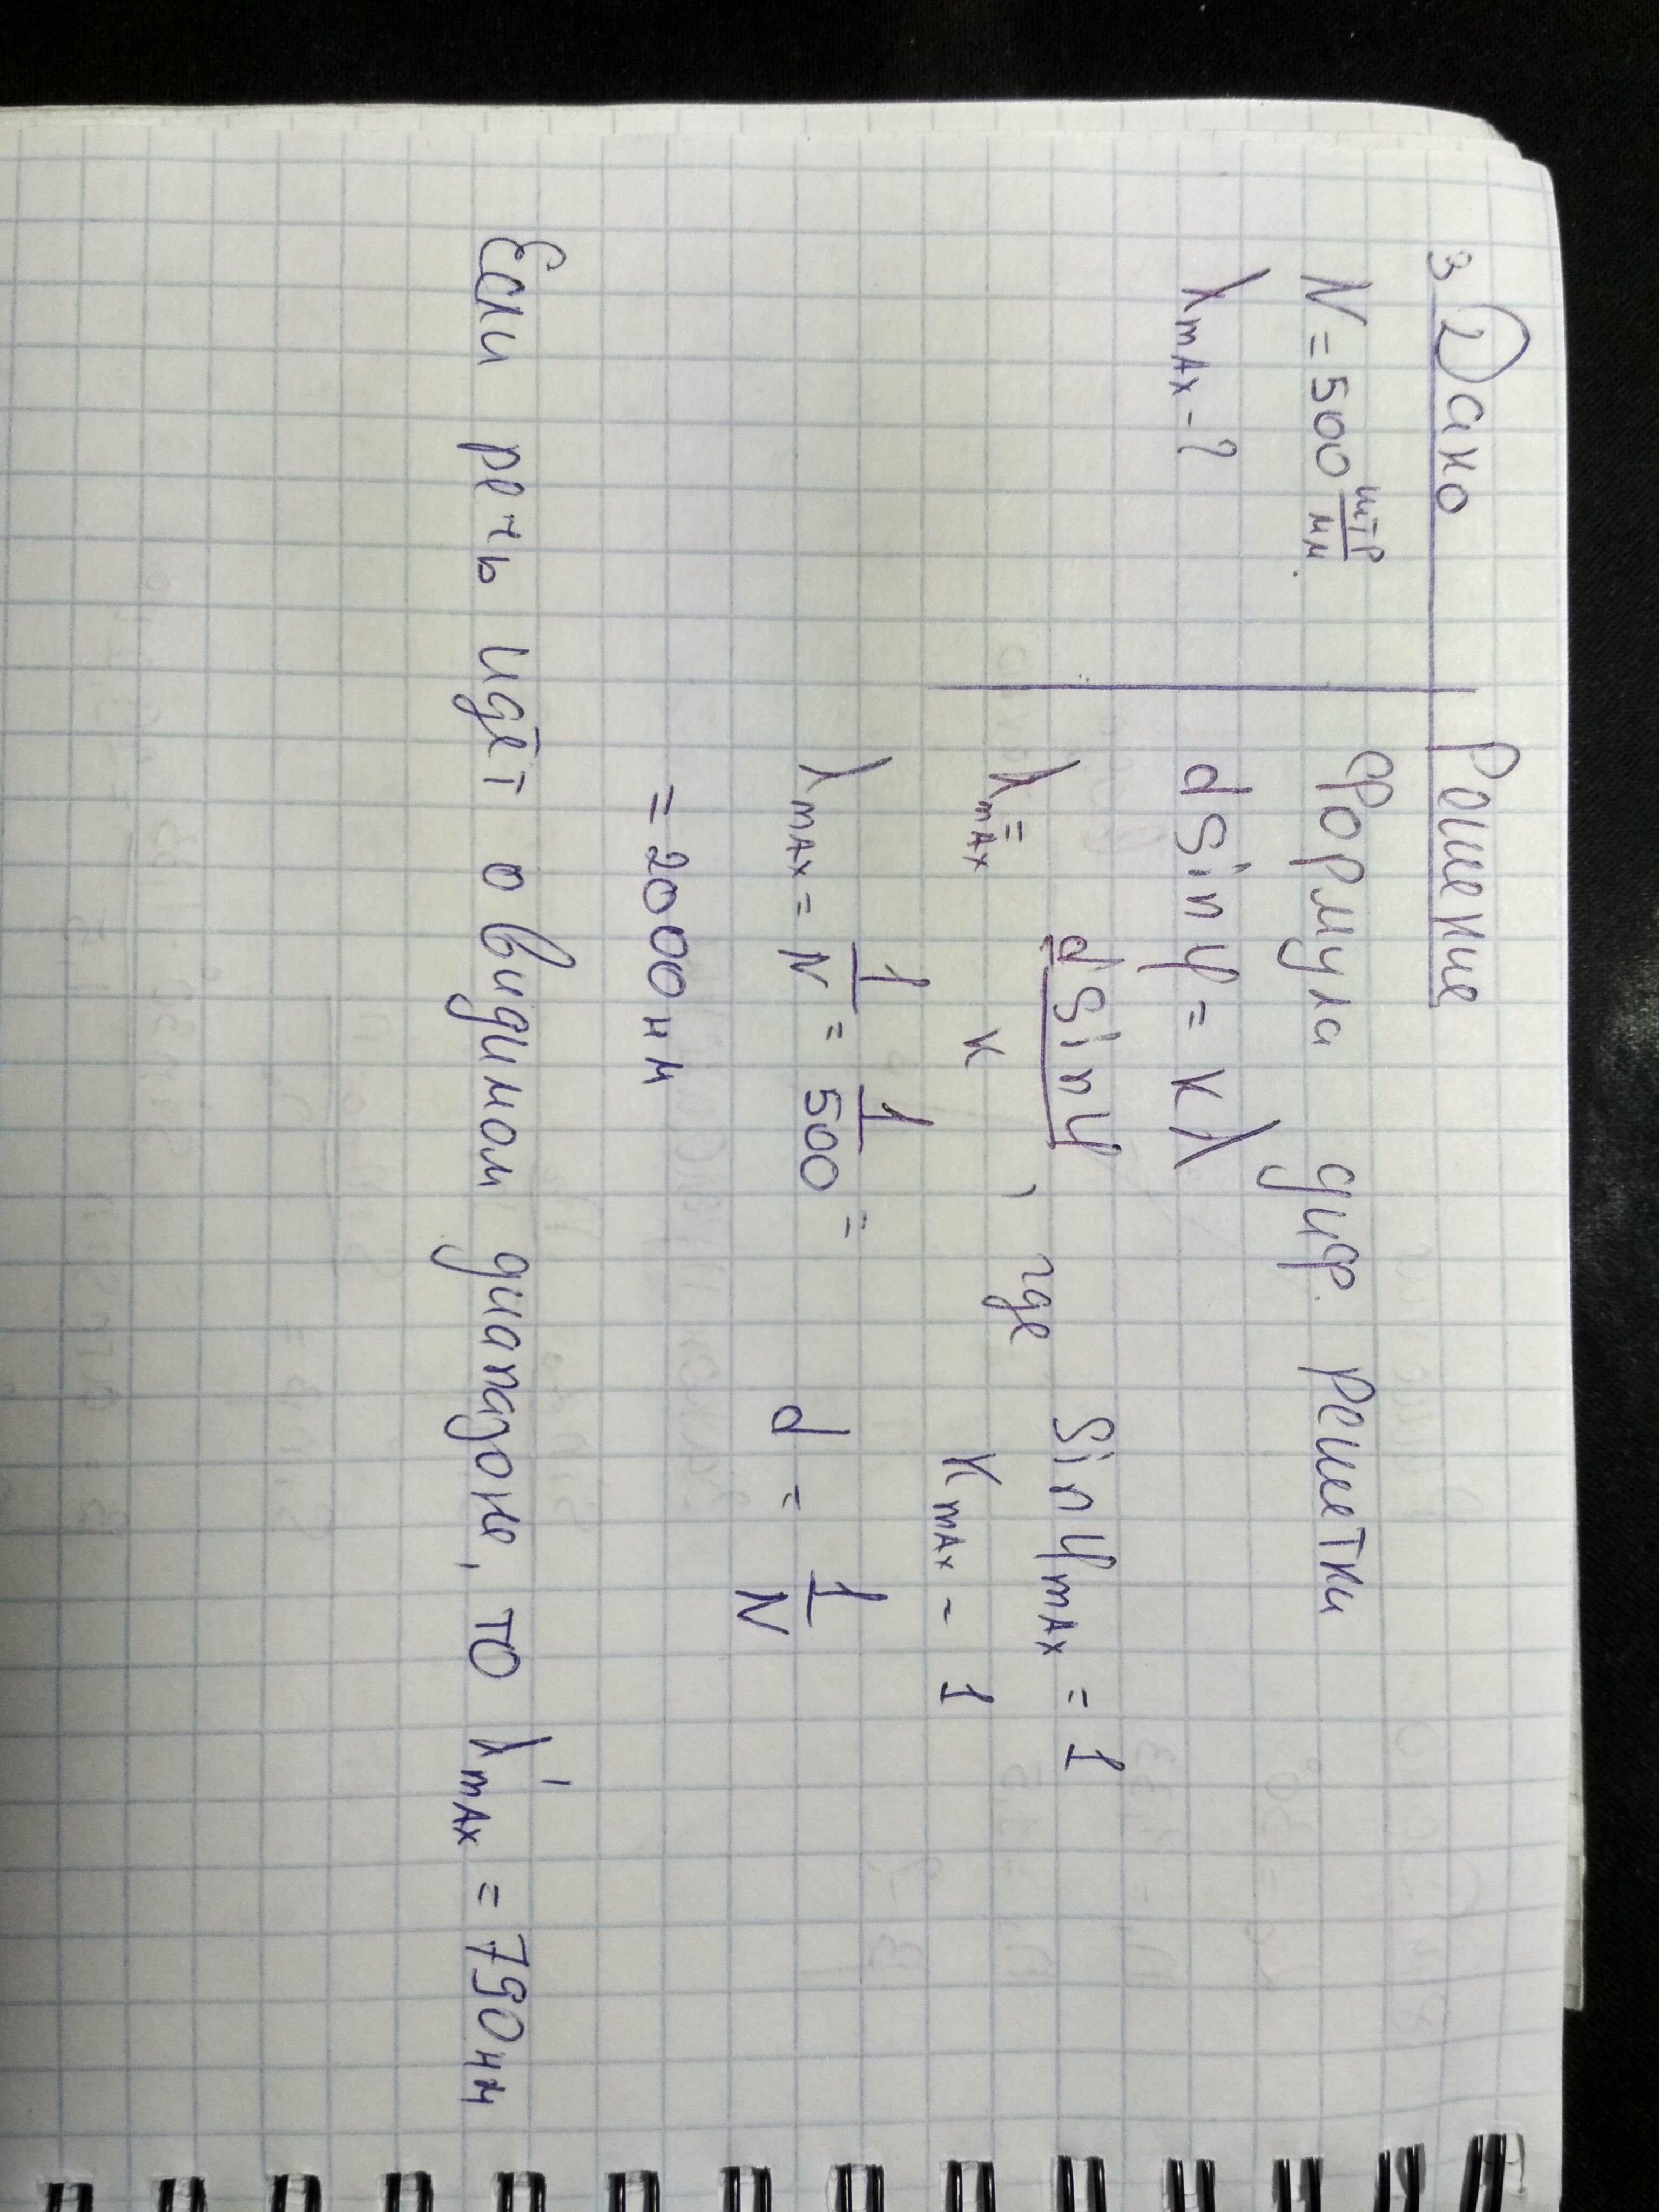 3 Дано Решение
N = 500 штр/мм Формула диф. решетки
λmax - ? d Sin φ = K λ
λmax = d Sin φ / K , где Sin φmax = 1
Kmax = 1
λmax = 1/N = 1/500 = d = 1/N
= 2000 нм
Если речь идёт о видимом диапазоне, то λ'max = 790 нм